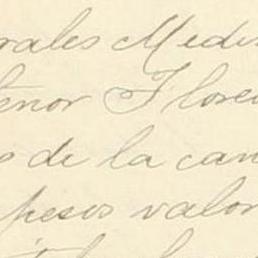 rales Medin
Señor Floren
s de la can
pesos valor